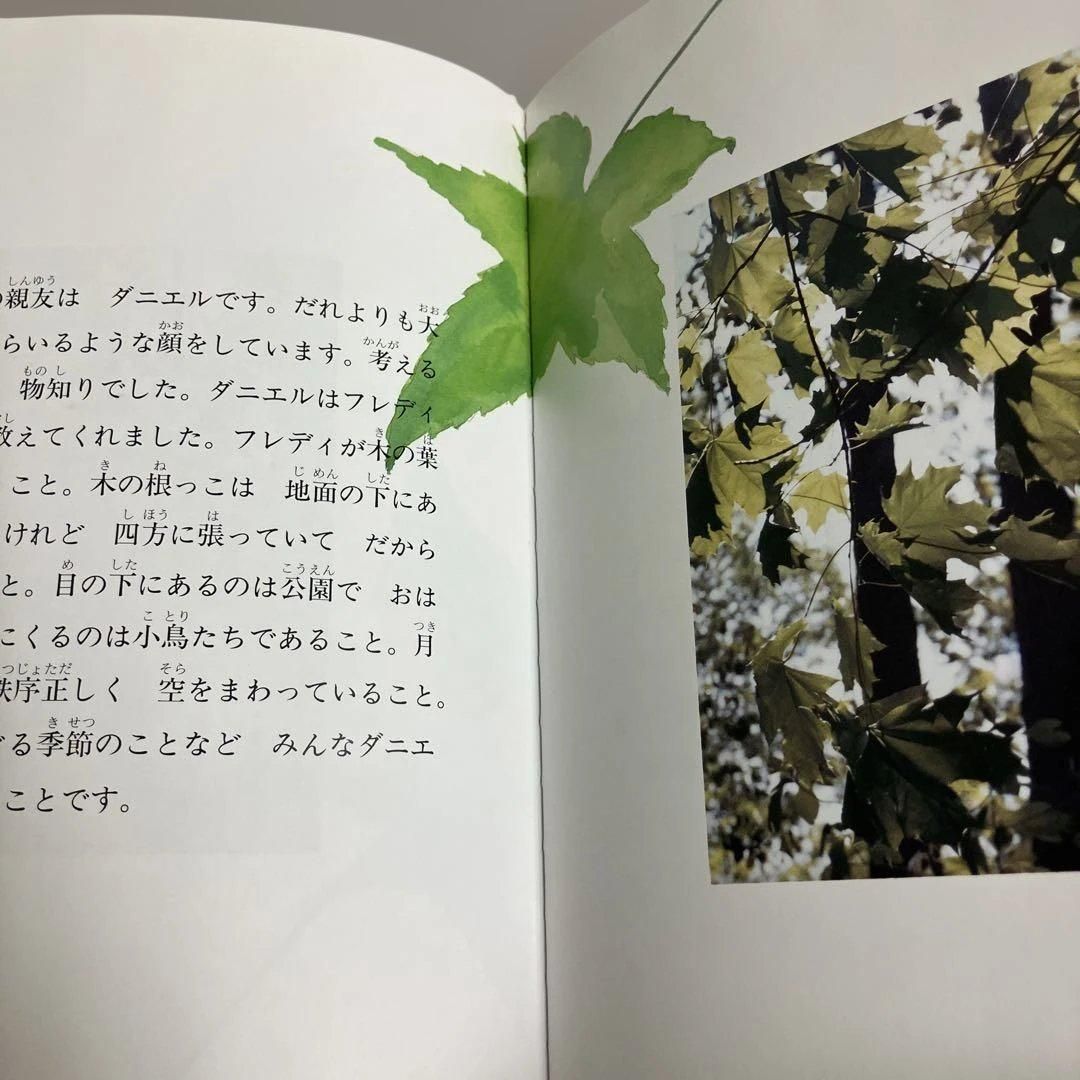 親友は　ダニエルです。だれよりも大
らいるような顔をしています。考える
物知りでした。ダニエルはフレディ
教えてくれました。フレディが木の葉
こと。木の根っこは　地面の下にあ
けれど　四方に張っていて　だから
と。目の下にあるのは公園で　おは
にくるのは小鳥たちであること。月
秩序正しく　空をまわっていること。
る季節のことなど　みんなダニエ
ことです。